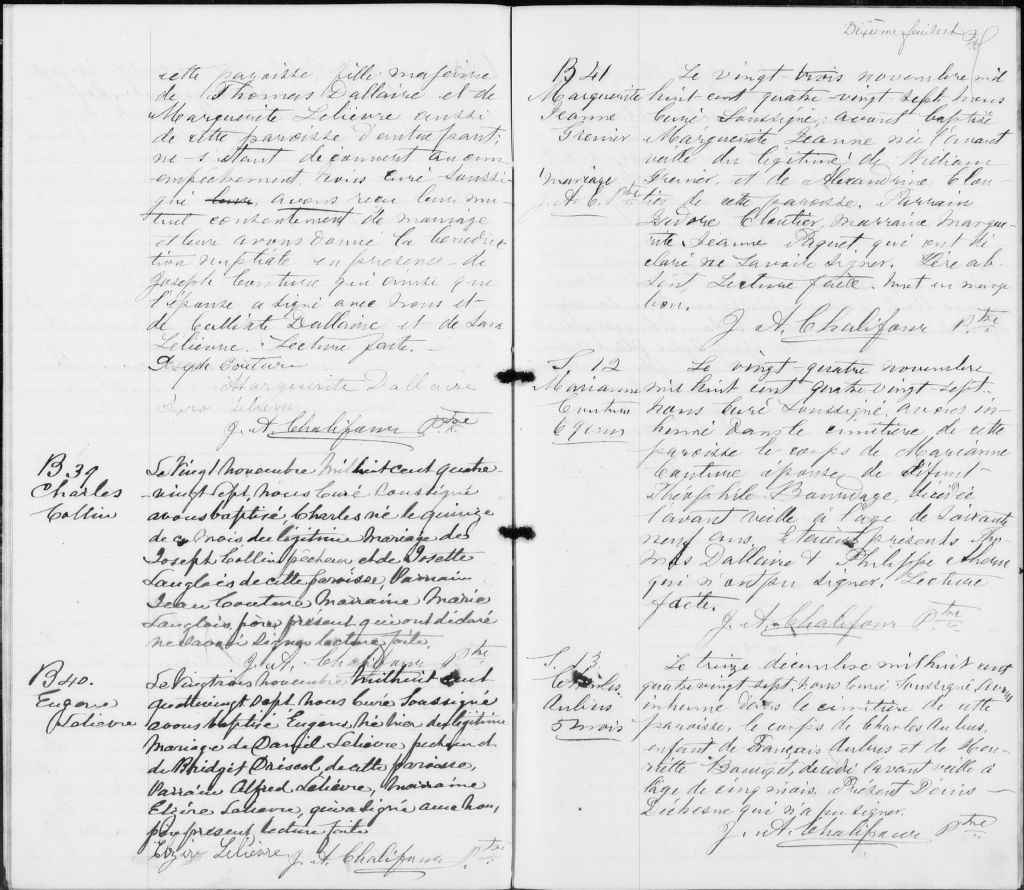 cette paroisse, fille majeure
de Thomas Dallaire et de
Marguerite Lelièvre aussi
de cette paroisse d'autre part;
ne s'étant découvert aucun
empêchement, nous Curé soussi-
gné avons reçu leur mu-
tuel consentement de mariage
et leur avons donné la bénédic-
tion nuptiale en présence de
Joseph Couture qui ainsi que
l'épouse a signé avec nous et
de Callixte Dallaire et de
Lelièvre. Lecture faite.
Joseph Couture
Marguerite Dallaire
Lelièvre
J. A. Chalifour Ptre
B 39
Charles
Collin
Le Vingt Novembre Mil huit cent quatre
vingt sept, nous Curé soussigné
avons baptisé Charles né le quinze
de ce mois du légitime Mariage de
Joseph Collin pêcheur et de Josette
Langlois de cette paroisse. Parrain
Jean Couture, Marraine Marie
Langlois, père présent qui ont déclaré
ne savoir signer lecture faite.
J. A. Chalifour Ptre
B 40.
Eugène
Lelièvre
Le Vingt trois novembre Mil huit cent
quatrevingt sept nous Curé Soussigné
avons baptisé Eugène né hier du légitime
Mariage de David Lelièvre pêcheur et
de Bridget Driscol, de cette paroisse,
Parrain Alfred Lelièvre, Marraine
Lelièvre, qui a signé avec nous,
père présent, lecture faite
Lelièvre J. A. Chalifour Ptre
Dixième feuillet
B 41
Marguerite
Jeanne
Grenier
mariage
J. A. C. Ptre
Le vingt-trois novembre mil
huit cent quatre-vingt-sept, nous
Curé soussigné, avons baptisé
Marguerite Jeanne née l'avant
veille du légitime de William
Grenier, et de Alexandrine Clou-
tier de cette paroisse. Parrain
Isidore Cloutier, marraine Margue-
rite Jeanne Piquet, qui ont dé-
claré ne savoir signer. Père ab-
sent. Lecture faite. mot en marge
bon.
J. A. Chalifour Ptre
S. 12
Marianne
Couture
Le vingt-quatre novembre
mil huit cent quatre vingt-sept
nous Curé soussigné, avons in-
humé dans le cimetière de cette
paroisse le corps de Marianne
Couture épouse de défunt
Théophile Bourdage, décédée
l'avant veille à l'age de soixante
neuf ans. Etaient présents Tho-
mas Dallaire & Philippe Ahern
qui n'ont pu signer. Lecture
faite.
J. A. Chalifour Ptre
S. 13
Charles
Aubus
5 mois
Le treize décembre mil huit cent
quatre vingt sept, nous Curé Soussigné avons
inhumé dans le cimetière de cette
paroisse, le corps de Charles Aubus,
enfant de Français Aubus et de Hen-
riette Bourget, décédé l'avant veille à
l'âge de cinq mois. Présent Denis
Duchesne qui n'a pu signer.
J. A. Chalifour Ptre